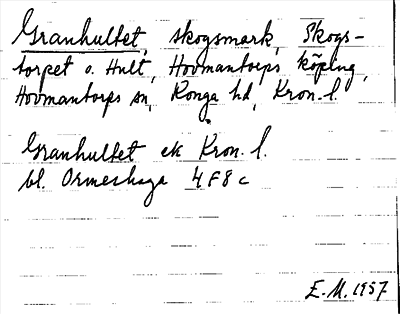 Granhultet, skogsmark, Skogs-
torpet o. Hult, Hovmantorps köping,
Hovmantorps sn, Konga hd, Kron. l.
Granhultet ek Kron. l.
bl. Ormeshaga 4F8c
E.M. 1957